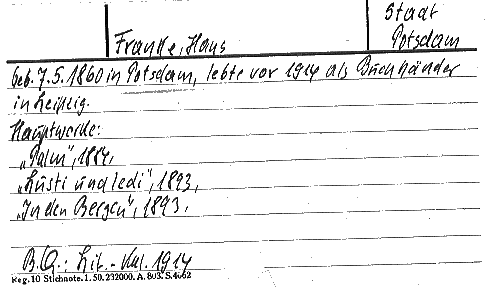 Stadt
Franke, Hans
Potsdam
geb. 7.5.1860 in Potsdam, lebte vor 1914 als Buchhänder
in Leipzig.
Hauptwerke:
„Palm", 1884,
„Lüsti und Ledi", 1893,
„In den Bergen", 1893.
B.Q.: Lit.-Kal. 1914
Reg. 10 Stichnote. 1. 50. 232000. A. 803. S. 4662